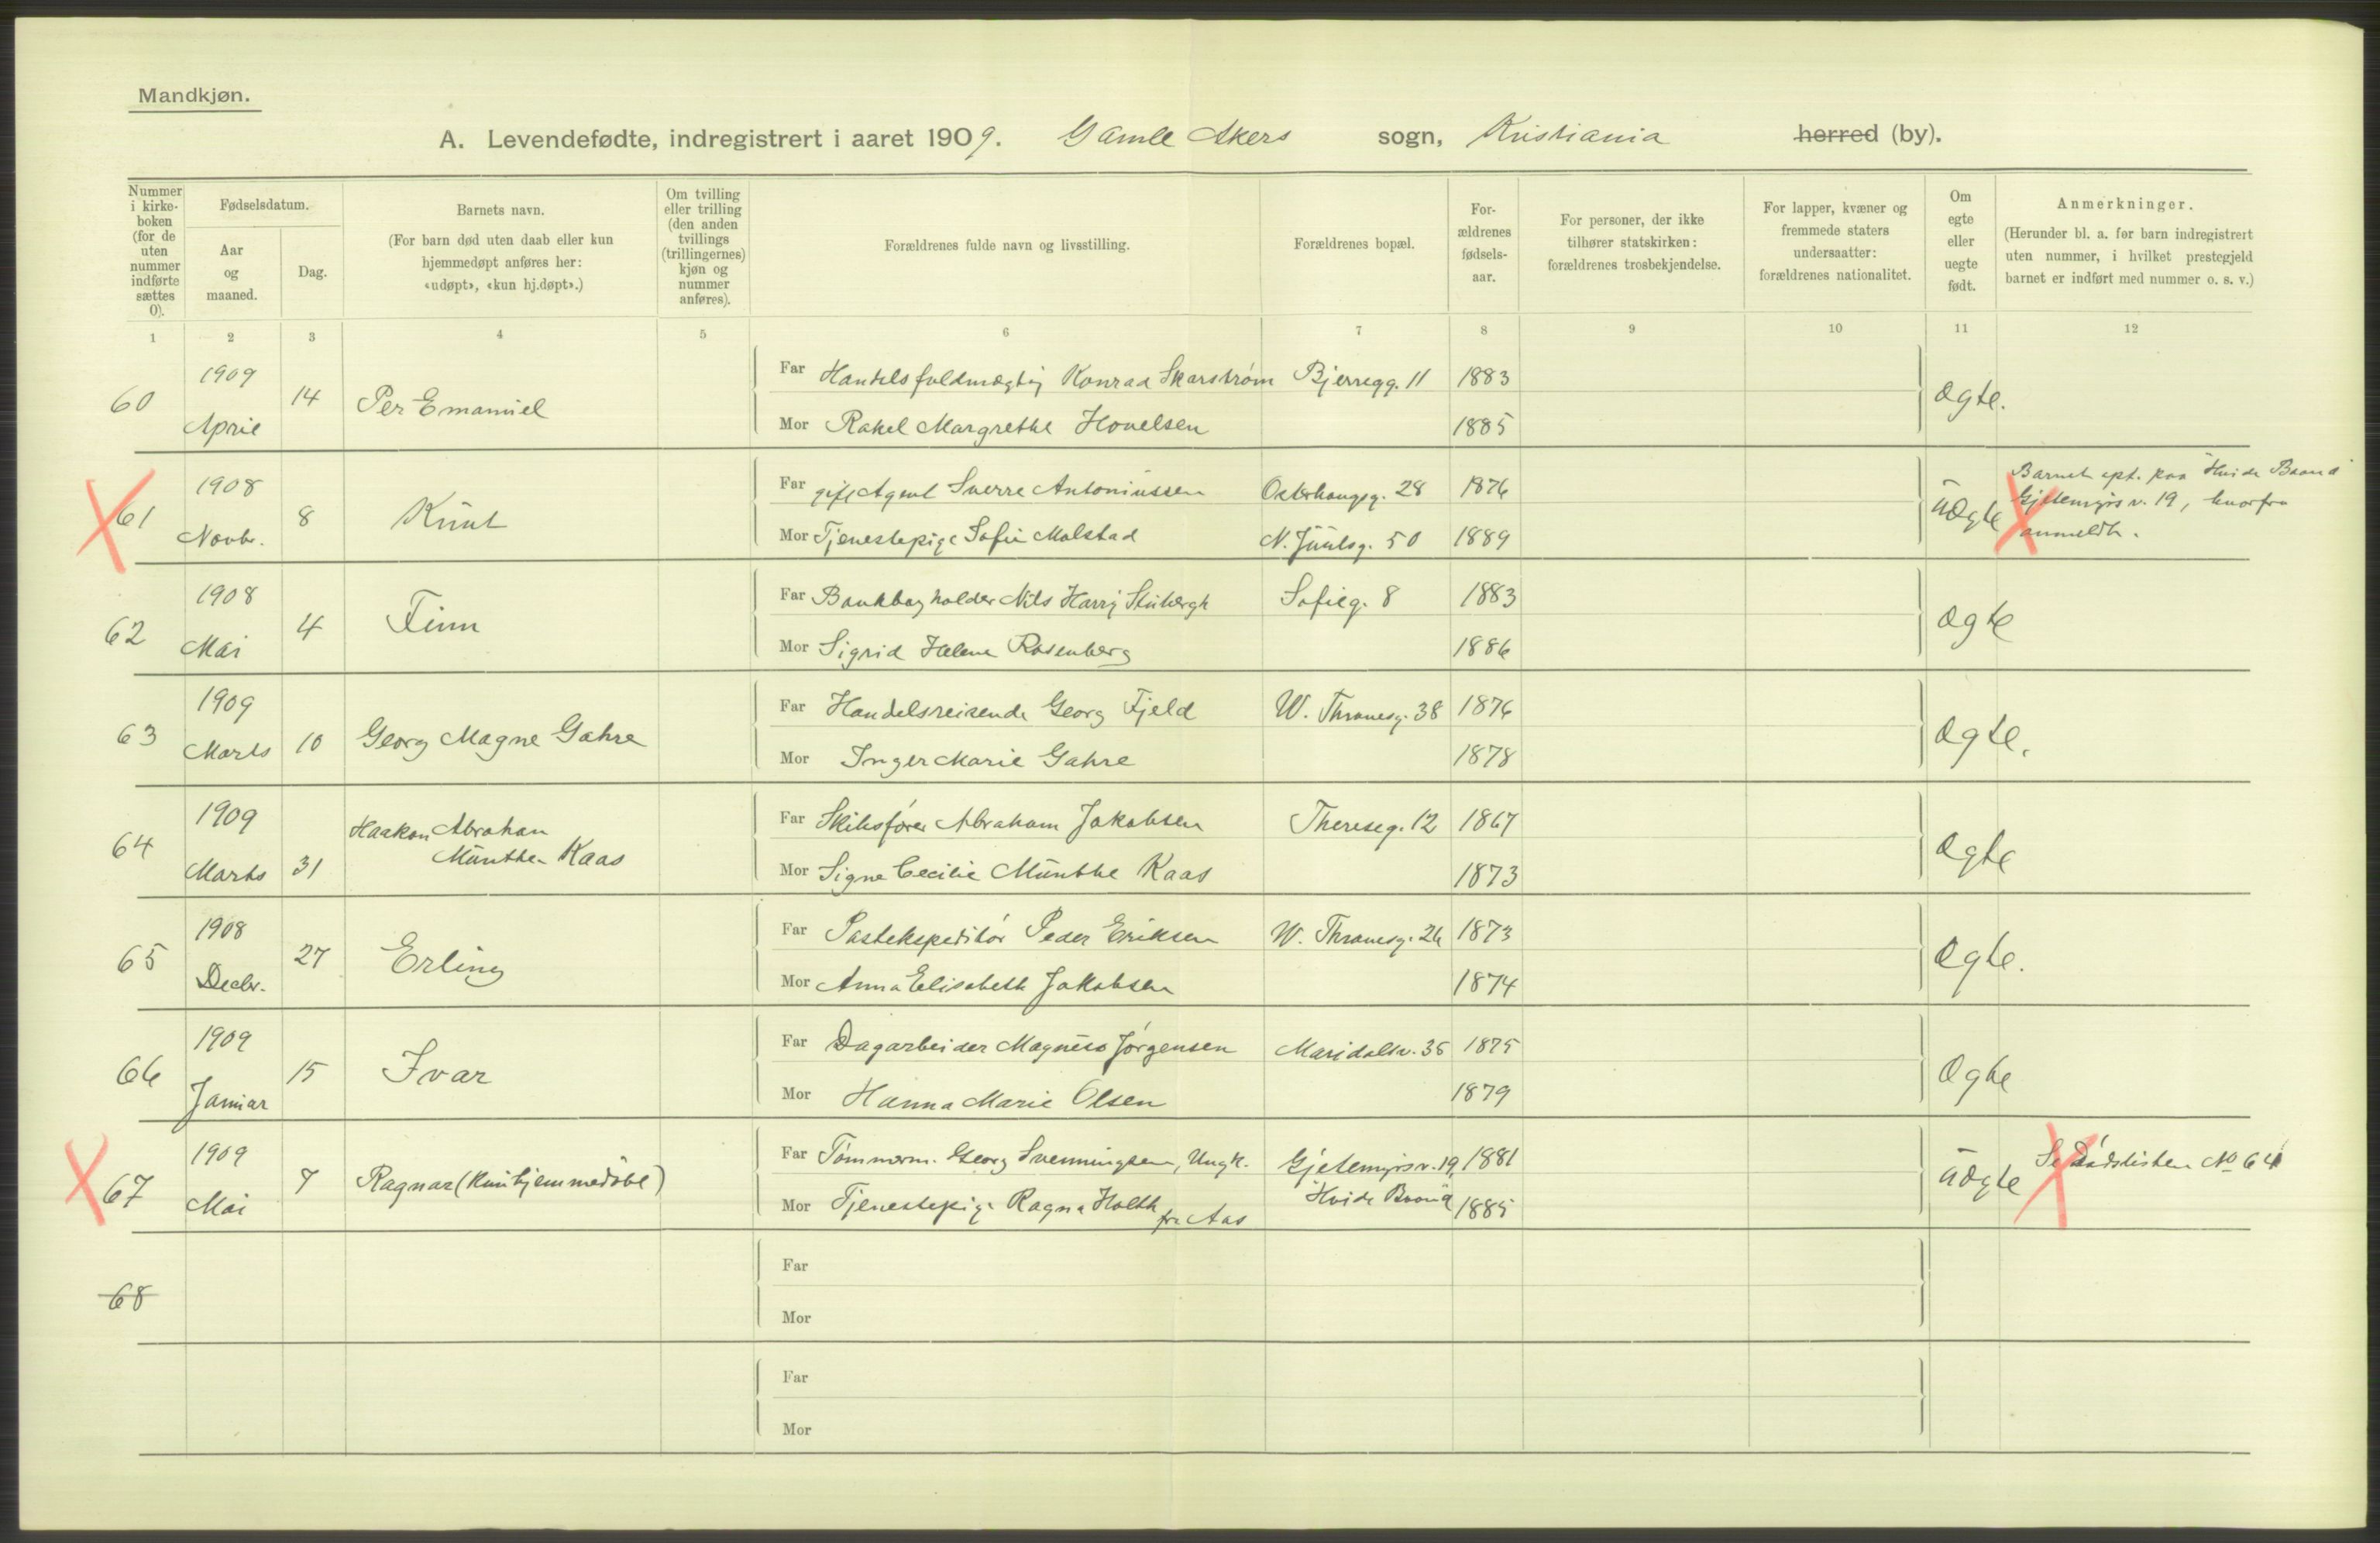 Mandkjøn.
A. Levendefødte, indregistrert i aaret 1909. Gamle Akers sogn, Kristiania herred (by).
Nummer i kirke-boken (for de uten nummer indførte sættes 0).
Fødselsdatum.
Aar og maaned.
Dag.
Barnets navn.
(For barn død uten daab eller kun hjemmedøpt anføres her: «udøpt», «kun hj.døpt».)
Om tvilling eller trilling (den anden tvillings (trillingernes) kjøn og nummer anføres).
Forældrenes fulde navn og livsstilling.
Forældrenes bopæl.
For-ældrenes fødsels-aar.
For personer, der ikke tilhører statskirken: forældrenes trosbekjendelse.
For lapper, kvæner og fremmede staters undersaatter: forældrenes nationalitet.
Om egte eller uegte født.
Anmerkninger.
(Herunder bl. a. for barn indregistrert uten nummer, i hvilket prestegjeld barnet er indført med nummer o. s. v.)
1 2 3 4 5 6 7 8 9 10 11 12
60 1909 April 14 Per Emanuel
Far Handelsfuldmægtig Konrad Skarstrøm Bjerregg. 11 1883 Ægte.
Mor Rakel Margrethe Hovelsen 1885
61 1908 Novbr. 8 Knut
Far gift Agent Sverre Antoniussen Osterhausg. 28 1876 Uægte
Mor Tjenestepige Sofie Malstad N. Juulsg. 50 1889
Barnet opt. paa "Hvide Baand" Gjetemyrsv. 19, hvorfra anmeldt.
62 1908 Mai 4 Finn
Far Bankbogholder Nils Harry Stubergh Sofieg. 8 1883 Ægte
Mor Sigrid Helene Rosenberg 1886
63 1909 Marts 10 Georg Magne Gahre
Far Handelsreisende Georg Fjeld W. Thranesg. 38 1876 Ægte.
Mor Inger Marie Gahre 1878
64 1909 Marts 31 Haakon Abraham Munthe-Kaas
Far Skibsfører Abraham Jakobsen Thereseg. 12 1867 Ægte
Mor Signe Cecilie Munthe Kaas 1873
65 1908 Decbr. 27 Erling
Far Postekspeditør Peder Eriksen W. Thranesg. 26 1873 Ægte.
Mor Anna Elisabeth Jakobsen 1874
66 1909 Januar 15 Ivar
Far Dagarbeider Magnus Jørgensen Maridalsv. 35 1875 Ægte
Mor Hanna Marie Olsen 1879
67 1909 Mai 7 Ragnar (kun hjemmedøbt)
Far Tømmerm. Georg Svenningsen, Ungk. Gjetemyrsv. 19, 1881 Uægte Se Dødslisten No 64
Mor Tjenestepige Ragna Holth fra Aas Hvide Baand 1885
68
Far
Mor
Far
Mor